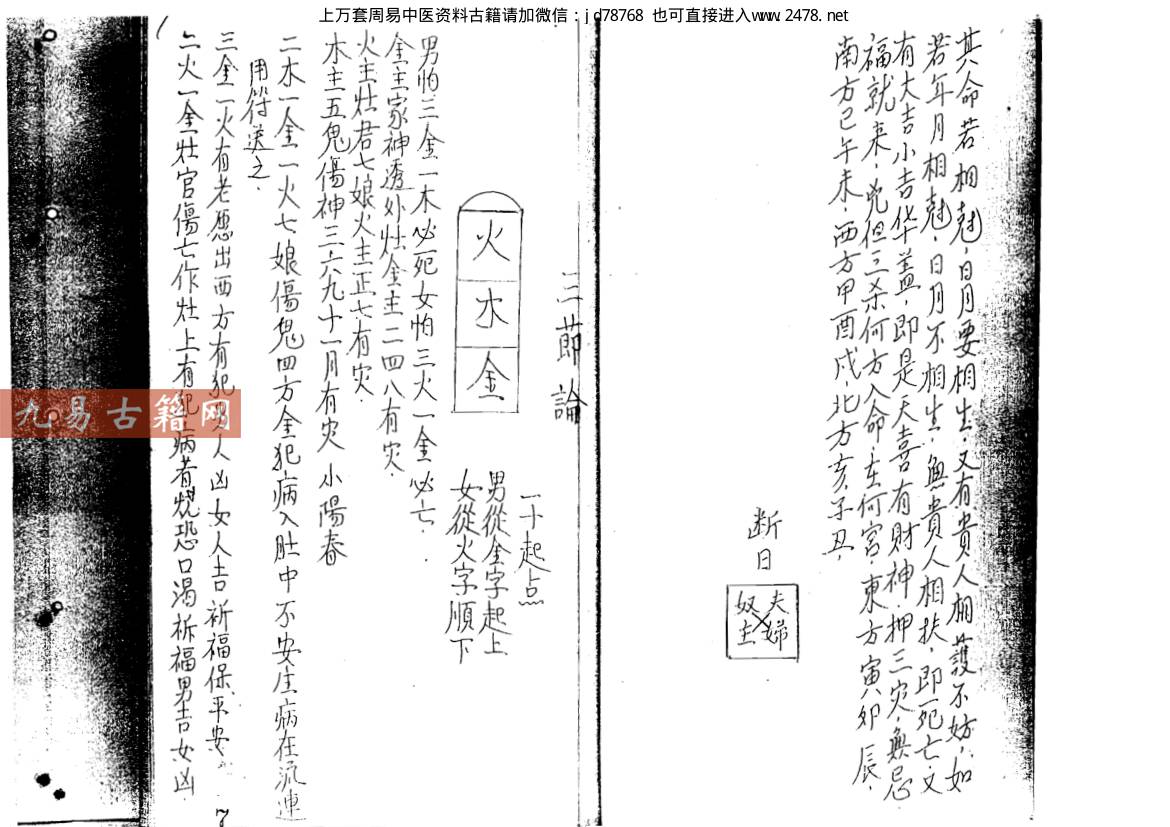 上万套周易中医资料古籍请加微信：jd78768 也可直接进入www.2478.net
其命若相尅，日月要相生，又有貴人相護不妨，如
若年月相尅，日月不相生，無貴人相扶，即死亡，又
有大吉小吉华盖，即是天喜有財神，押三灾，無忌
福就来，兇但三杀何方入命，在何宫，東方寅卯辰，
南方巳午未，西方甲酉戌，北方亥子丑，
断日
夫婦
奴主
三節論
一十起点
男從金字起上
女從火字順下
火
水
金
男怕三金一木必死女怕三火一金必亡．
金主家神透外灶金主二四八有灾．
火主灶君七娘火主正七有灾．
木主五鬼傷神三六九十一月有灾 小陽春
二木一金一火七娘傷鬼四方金犯病入肚中不安生病在流連
用符送之．
三金一火有老愿出西方有犯男人凶女人吉祈福保平安．
二火一金灶官傷亡作灶上有犯病者燒恐口渴祈福男吉女凶．
7
九易古籍网